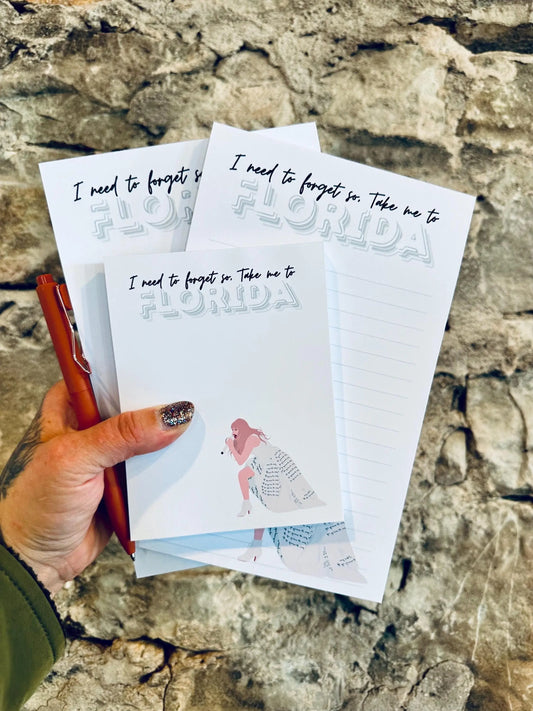 I need to forget so
FLOR
I need to forget so. Take me to
FLORIDA
I need to forget so. Take me to
FLORIDA